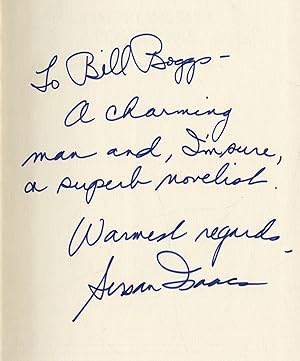 To Bill Boggs -
A charming
man and, I'm sure,
a superb novelist.
Warmest regards -
Susan Isaacs